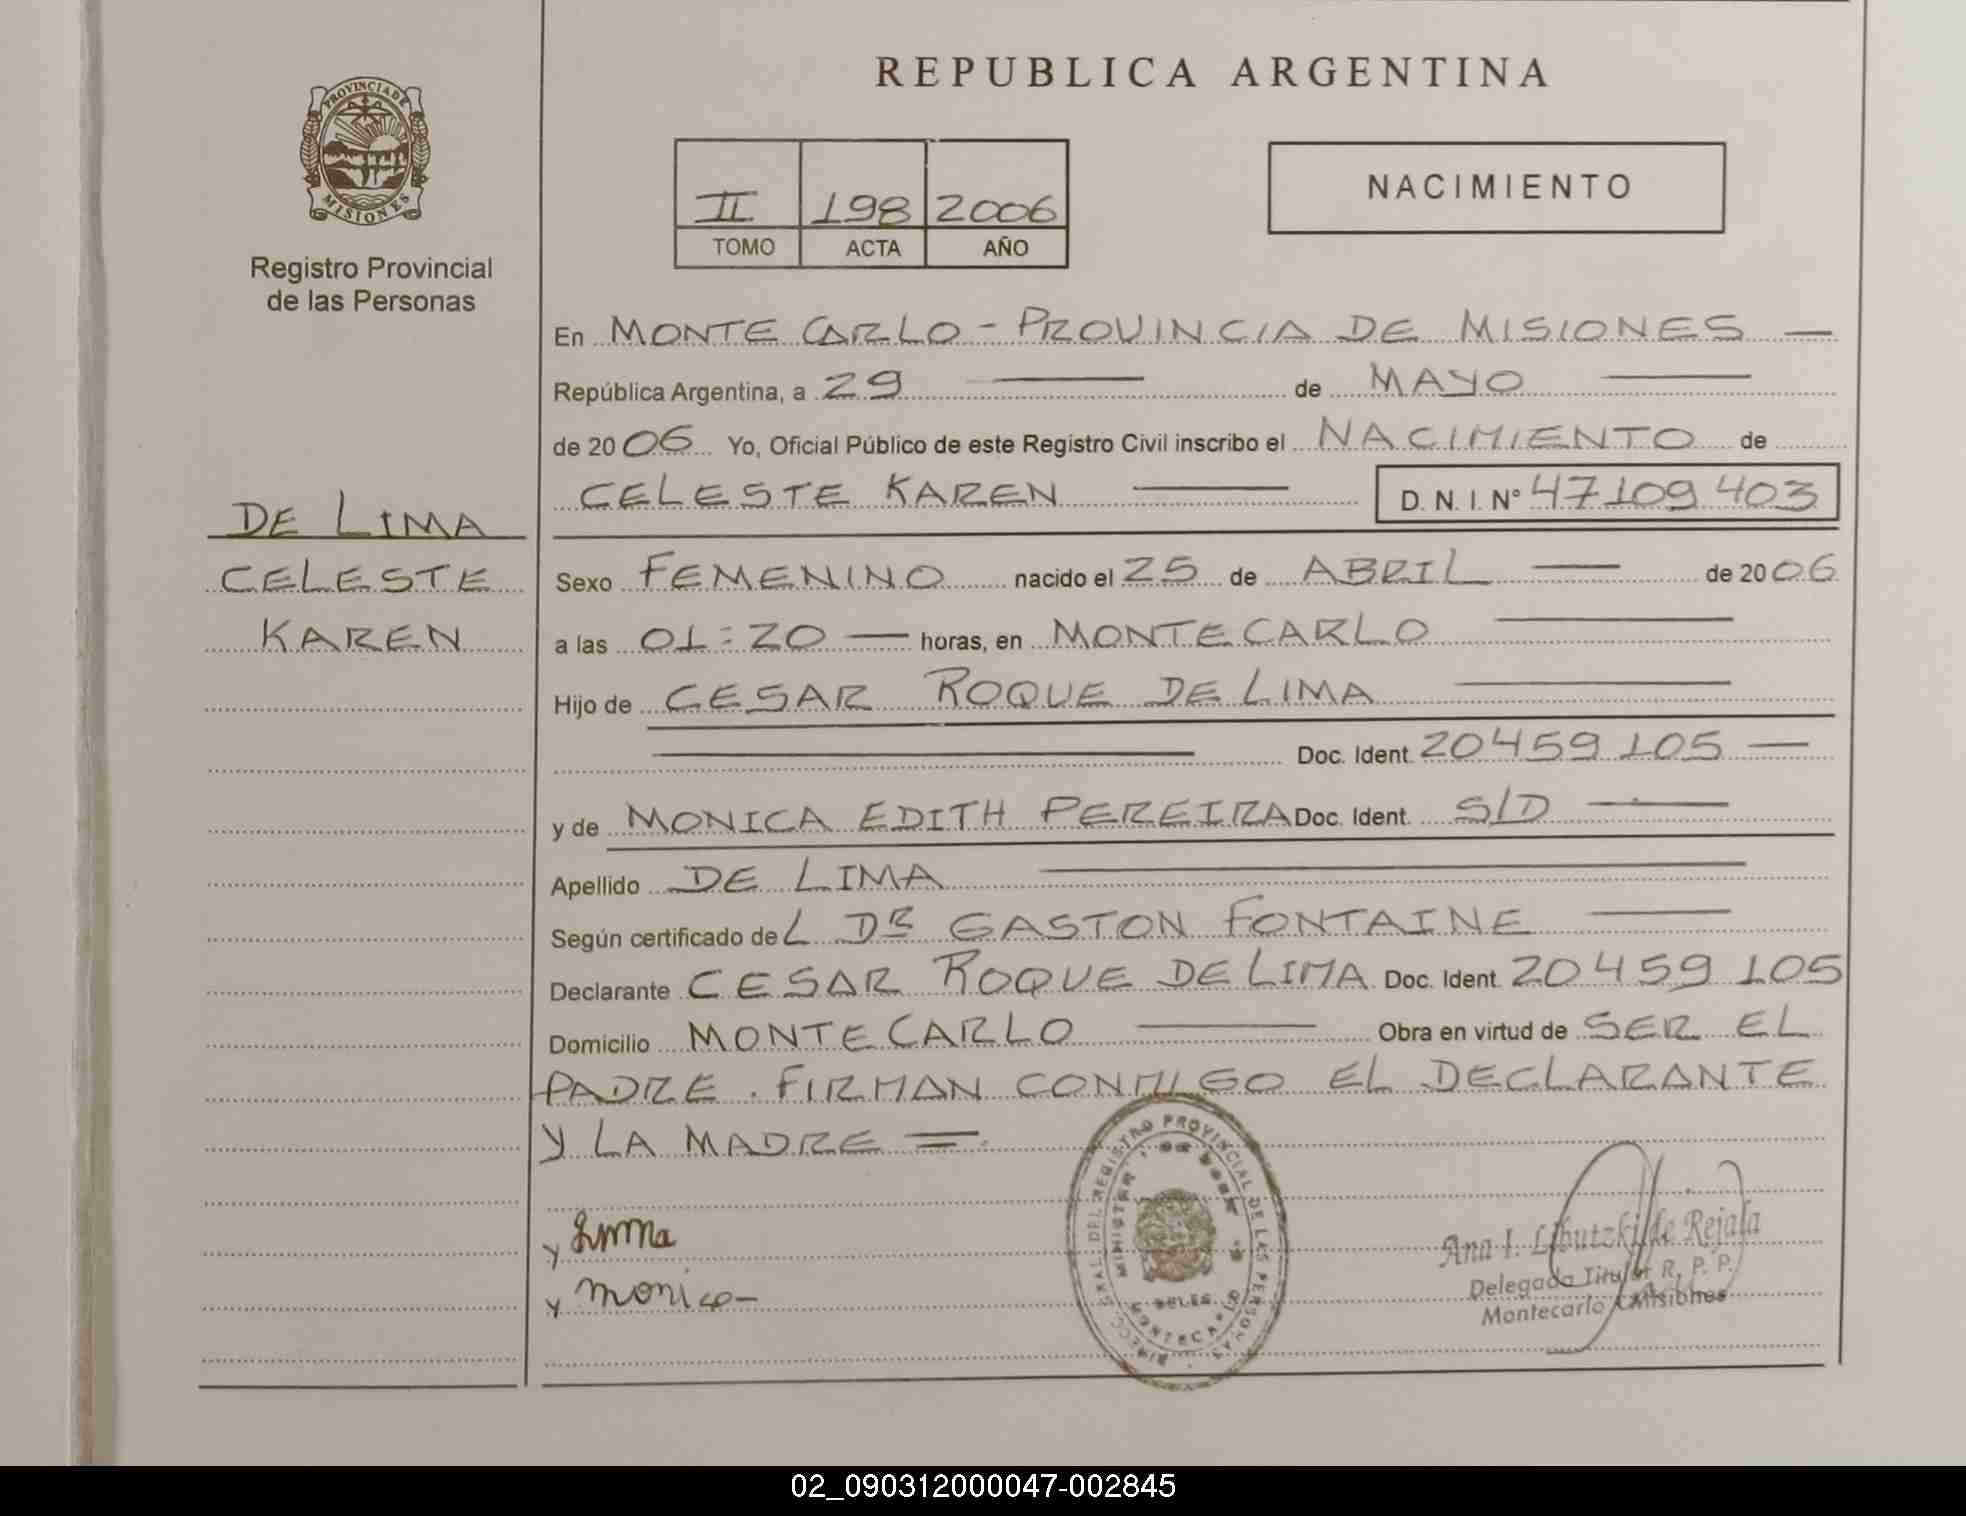 REPUBLICA ARGENTINA
PROVINCIA DE
MISIONES
Registro Provincial
de las Personas
II 198 2006
TOMO ACTA AÑO
NACIMIENTO
En MONTE CARLO - PROVINCIA DE MISIONES —
República Argentina, a 29 — de MAYO —
de 2006 Yo, Oficial Público de este Registro Civil inscribo el NACIMIENTO de
CELESTE KAREN — D. N. I. Nº 47109403
DE LIMA
CELESTE
KAREN
Sexo FEMENINO nacido el 25 de ABRIL — de 2006
a las 01:20 — horas, en MONTECARLO —
Hijo de CESAR ROQUE DE LIMA —
— Doc. Ident. 20459105 —
y de MONICA EDITH PEREIRA Doc. Ident. S/D —
Apellido DE LIMA —
Según certificado del DR GASTON FONTAINE —
Declarante CESAR ROQUE DE LIMA Doc. Ident. 20459105
Domicilio MONTECARLO — Obra en virtud de SER EL
PADRE. FIRMAN CONMIGO EL DECLARANTE
Y LA MADRE =.
Lima
monica
REGISTRO PROVINCIAL DE LAS PERSONAS
MONTECARLO
Ana I. Libutzki de Rejala
Delegada Titular R. P. P.
Montecarlo Misiones
02_090312000047-002845